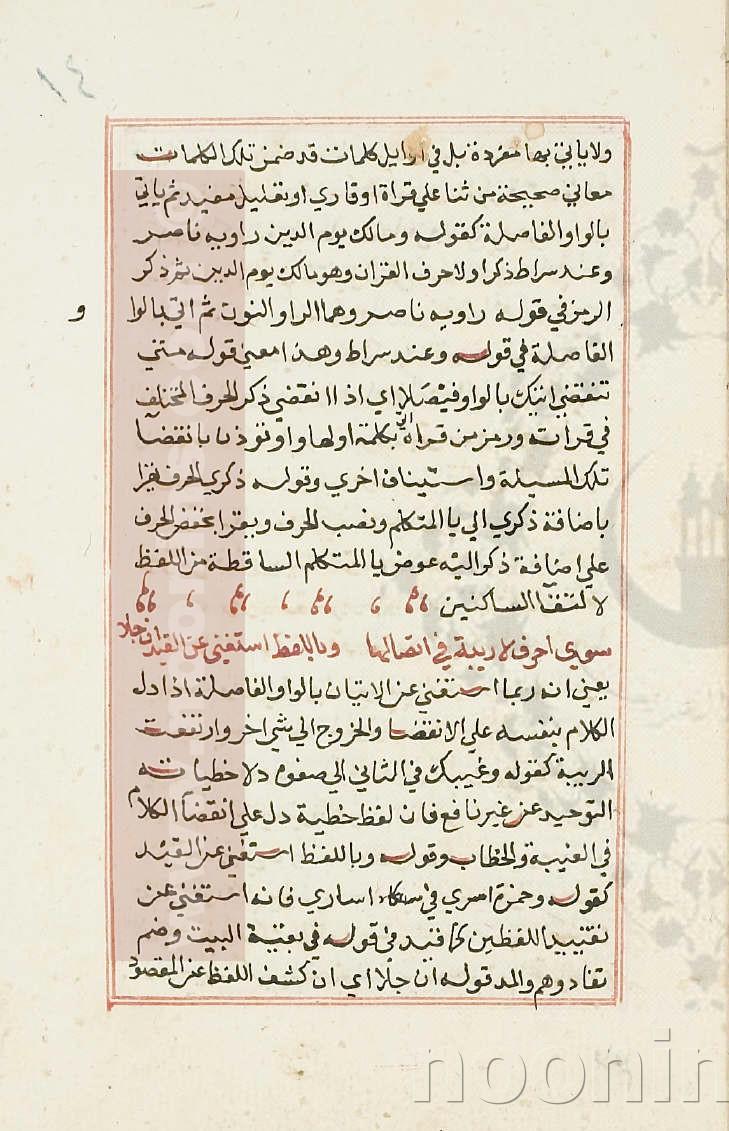 ١٤
ولا ياتي بها مفردة بل في اوايل كلمات قد ضمن تلك الكلمات
معاني صحيحة من ثنا علي قراة او قاري او تعليل مفيد ثم ياتي
بالواو الفاصلة كقوله ومالك يوم الدين راويه ناصر
وعند سراط ذكر اولا حرف القران وهو مالك يوم الدين ثم ذكر
الرمز في قوله راويه ناصر وهما الرا والنون ثم اتي بالوا
و
الفاصلة في قوله وعند سراط وهذا معني قوله متي
تنقضي اتيك بالواو فيصلا اي اذا انقضي ذكر الحرف المختلف
في قرات ورمز من قراه اتي بكلمة اولها واو توذن بانقضا
تلك المسيلة واستيناف اخري وقوله ذكري الحرف يقرا
باضافة ذكري الي يا المتكلم ونصب الحرف ويقرا بخفض الحرف
علي اضافة ذكر اليه عوض يا المتكلم الساقطة من اللفظ
لالتقا الساكنين
سوي احرف لا ريبة في اتصالها وباللفظ استغني عن القيد ان جلا
يعني انه ربما استغني عن الاتيان بالواو الفاصلة اذا دل
الكلام بنفسه علي الانقضا والخروج الي شي اخر وارتفعت
الريبة كقوله وغيبك في الثاني الي صفوه دلا خطياته
التوحيد عن غير نافع فان لفظ خطية دل علي انقضا الكلام
في الغيبة والخطاب وقوله وباللفظ استغني عن القيد
كقوله وحمزة اسري في اساري فانه استغني عن
تقييد اللفظين كما قيد في قوله في بقية البيت وضم
تفادوهم والمد قوله ان جلا اي ان كشف اللفظ عن المقصود
noonin